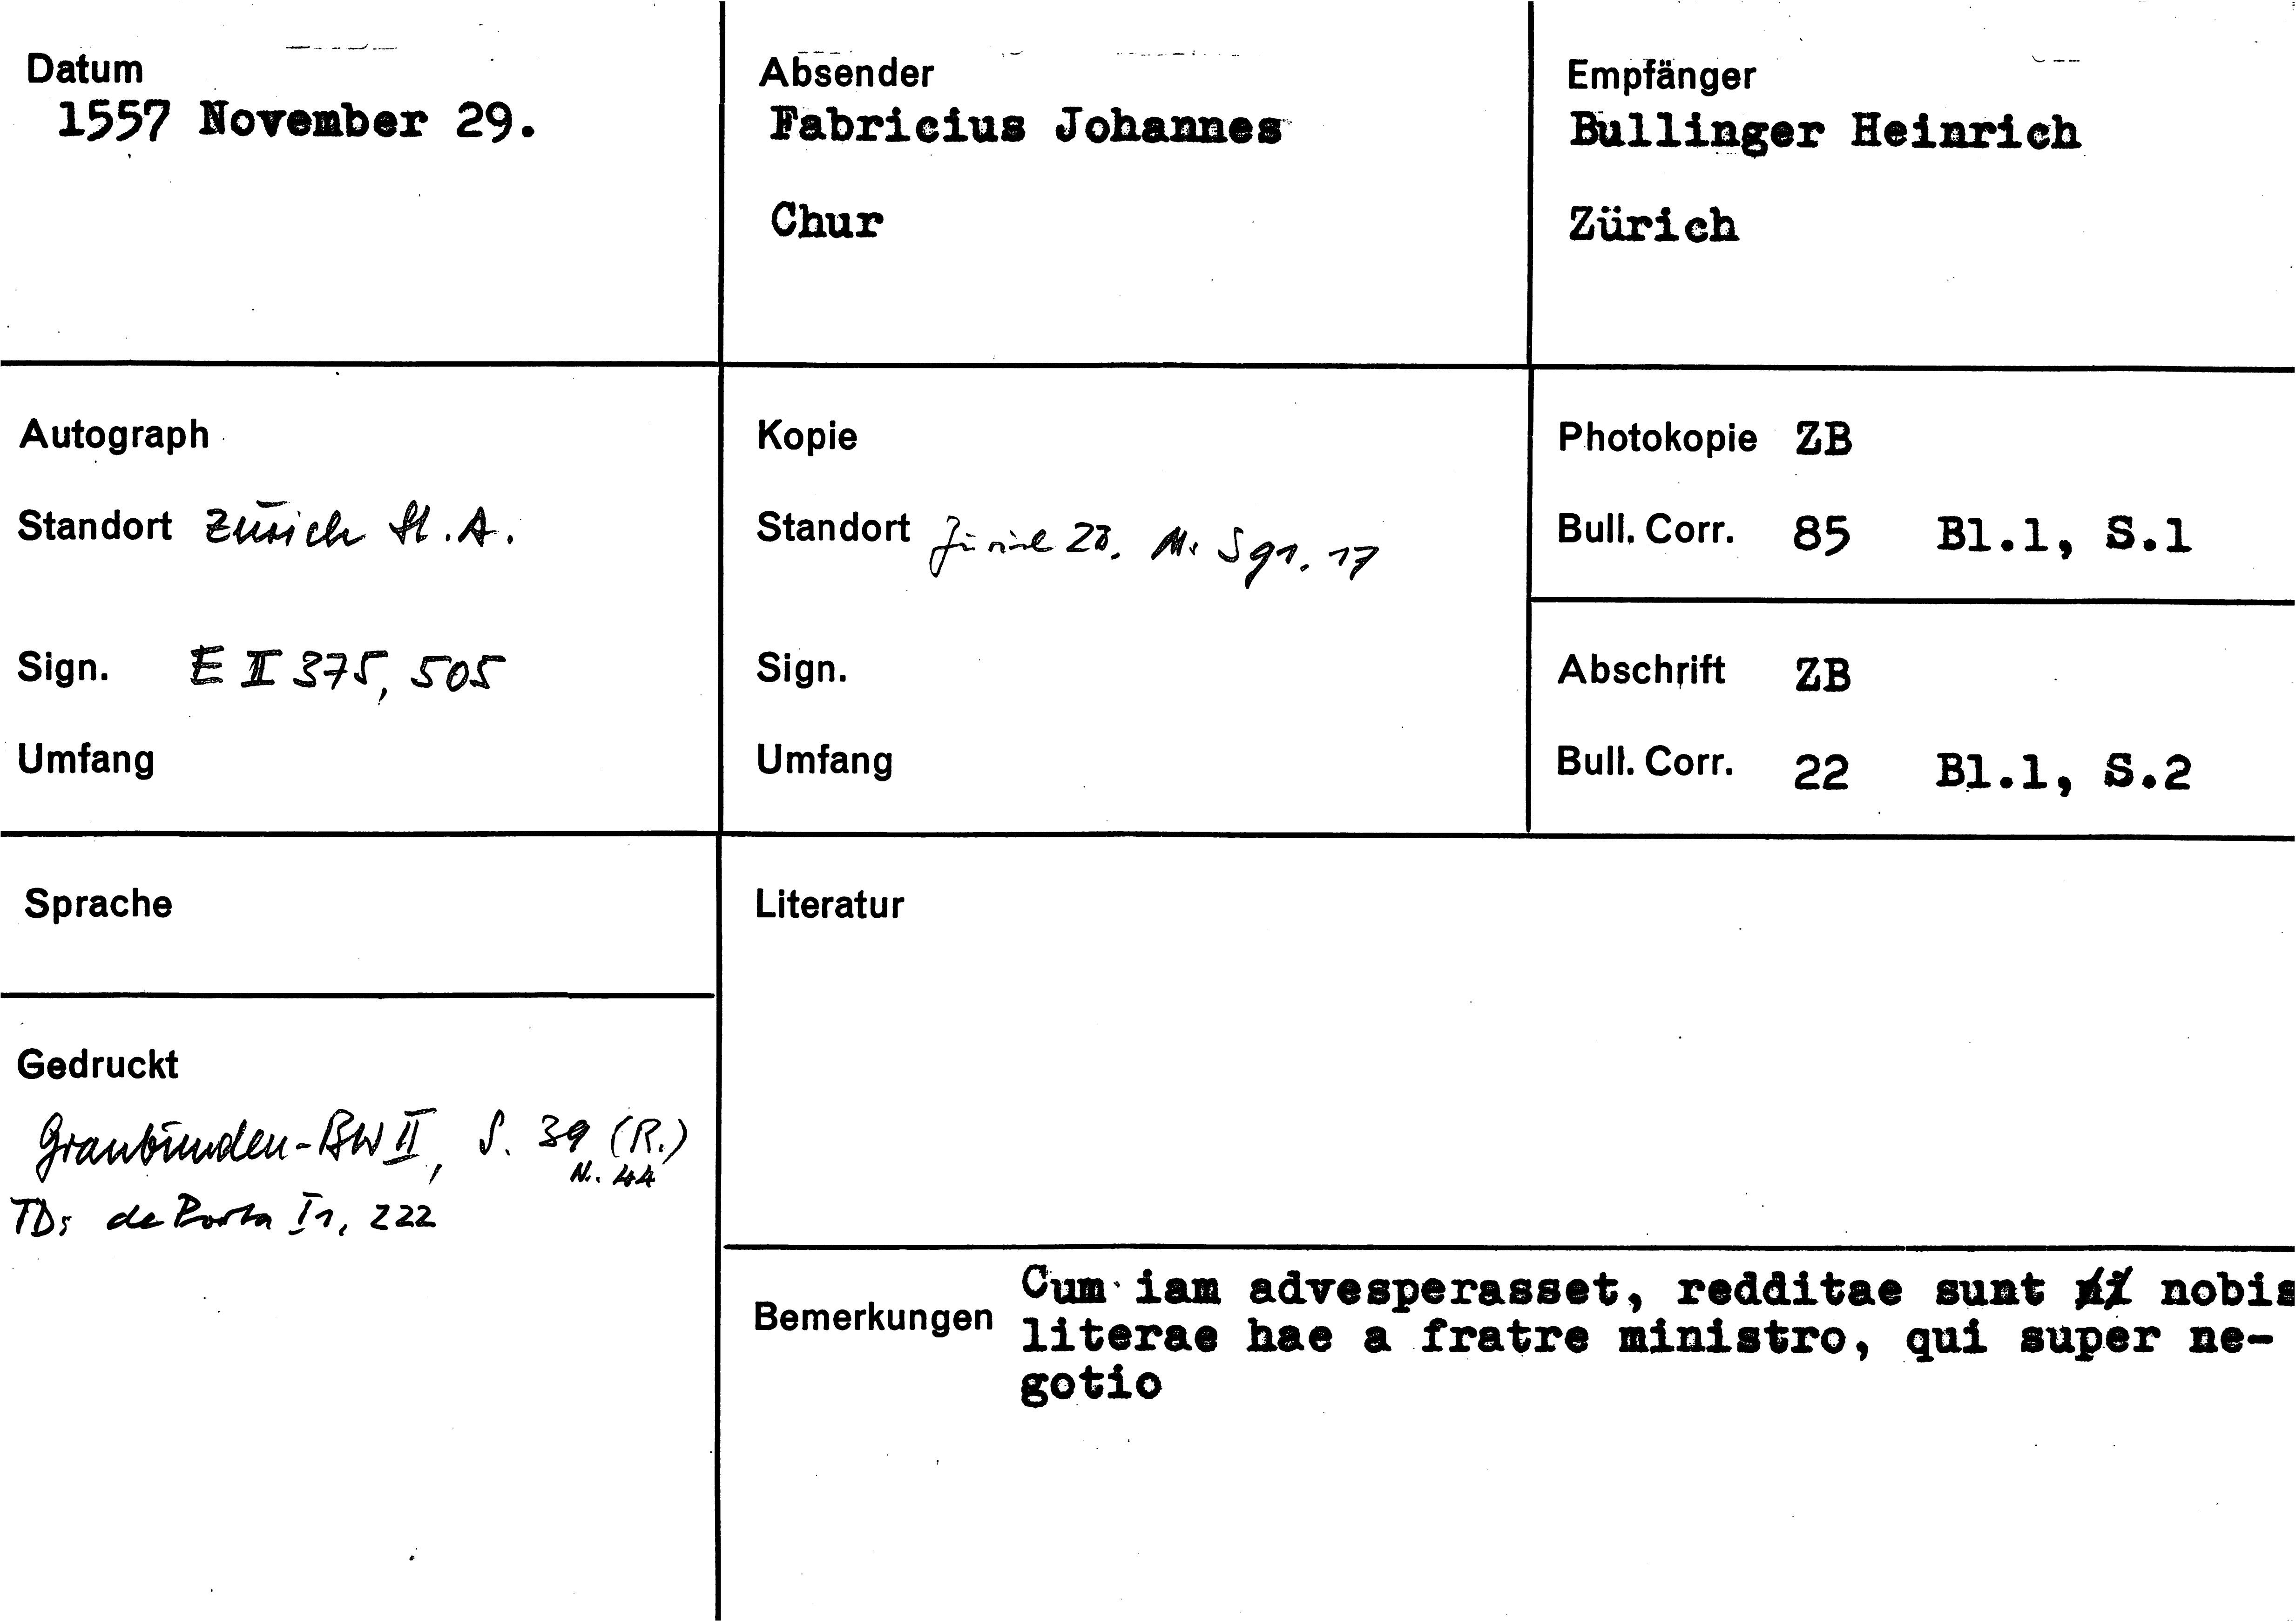 Datum
1557 November 29.
Absender
Fabricius Johannes
Chur
Empfänger
Bullinger Heinrich
Zürich
Autograph
Standort Zürich St. A.
Sign. E II 375, 505
Umfang
Kopie
Standort Zürich ZB,
Sign.
Umfang
Photokopie ZB
Bull. Corr. 85 Bl.1, S.1
Abschrift ZB
Bull. Corr. 22 Bl.1, S.2
Sprache
Gedruckt
Graubünden-BW II, S. 39 (R.)
Nr. 44
TD: de Porta I1, 222
Literatur
Bemerkungen
Cum iam advesperasset, redditae sunt nobis
literae hae a fratre ministro, qui super ne-
gotio